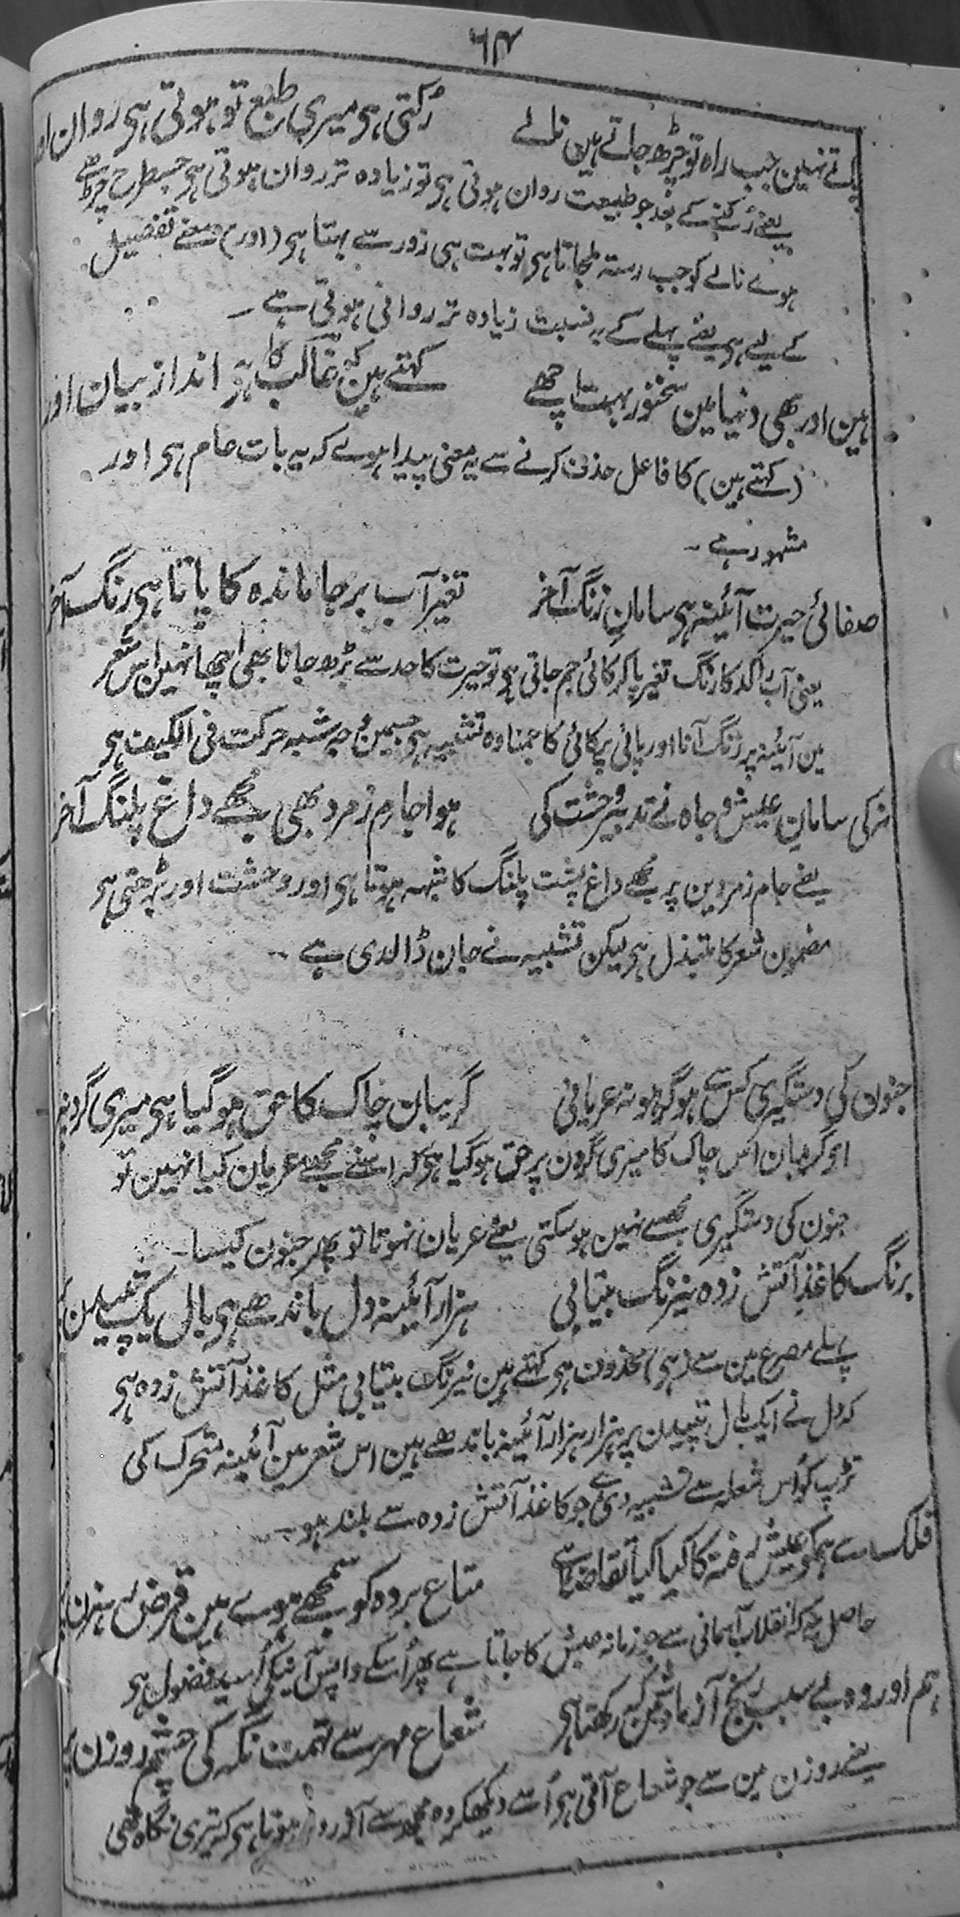 ۶۴
پاتے نہین جب راہ تو چڑھ جاتے ہین نالے رُکتی ہی میری طبع تو ہوتی ہی روان اور
یعنے رُکنے کے بعد جو طبیعت روان ہوتی ہی تو زیادہ تر روان ہوتی ہی جسطرح چڑھے
ہوے نالے کو جب رستہ ملجاتا ہی تو بہت ہی زور سے بہتا ہی (اور) معنے تفضیل
کے لیے ہی یعنے پہلے کے بہ نسبت زیادہ تر روانی ہوتی ہے۔
ہین اور بھی دنیا مین سخنور بہت اچھے کہتے ہین کہ غالب کا ہی انداز بیان اور
(کہتے ہین) کا فاعل حذف کرنے سے یہ معنی پیدا ہوے کہ یہ بات عام ہی اور
مشہور ہے۔
صفائی حیرت آئینہ ہی سامانِ زنگ آخر تغیر آب برجا ماندہ کا پاتا ہی رنگ آخر
یعنی آب راکد کا رنگ تغیر پا کر کائی جم جاتی ہی تو حیرت کا حد سے بڑھ جانا بھی اچھا نہین اس شعر
مین آئینہ پر زنگ آنا اور پانی پر کائی کا جمنا وہ تشبیہ ہی جسمین وجہ شبہ حرکت فی الکیف ہی
نہ کی سامانِ عیش و جاہ نے تدبیر وحشت کی ہوا جامِ زمرد بھی مجھے داغِ پلنگ آخر
یعنے جام زمردین پر مجھے داغ پشت پلنگ کا شبہہ ہوتا ہی اور وحشت اور بڑھتی ہی
مضمون شعر کا مبتذل ہی لیکن تشبیہ نے جان ڈالدی ہے۔
جنون کی دستگیری کس سے ہو گر ہو نہ عریانی گریبان چاک کا حق ہو گیا ہی میری گردن پر
اے گریبان اس چاک کا میری گردن پر حق ہو گیا ہی کہ اسنے مجھے عریان کیا نہین تو
جنون کی دستگیری مجھسے نہین ہو سکتی یعنے عریان نہوتا تو پھر جنون کیسا۔
برنگ کاغذ آتش زدہ نیرنگ بیتابی ہزار آئینہ دل باندھے ہی بال یک تپیدن پر
پہلے مصرع مین سے (ہی) محذوف ہی کہتے ہین نیرنگ بیتابی مثل کاغذ آتش زدہ ہی
کہ دل نے ایک بال تپیدن پر ہزار ہزار آئینہ باندھے ہین اس شعر مین آئینہ متحرک کی
تڑپ کو اُس شعلہ سے تشبیہ دی ہے جو کاغذ آتش زدہ سے بلند ہو۔
فلک سے ہمکو عیش رفتہ کا کیا کیا تقاضا ہے متاع بردہ کو سمجھے ہوے ہین قرض رہزن پر
حاصل یہ کہ انقلاب آسمانی سے جو زمانہ عیش کا جاتا ہے پھر اُسکے واپس آنیکی اُمید فضول ہی
ہم اور وہ بے سبب رنج آشنا دشمن کہ رکھتا ہی شعاع مہر سے تہمت نگہ کی چشم روزن پر
یعنے روزن مین سے جو شعاع آتی ہی اُسے دیکھکر وہ مجھ سے آزردہ ہوتا ہی کہ تیری نگاہ تھی